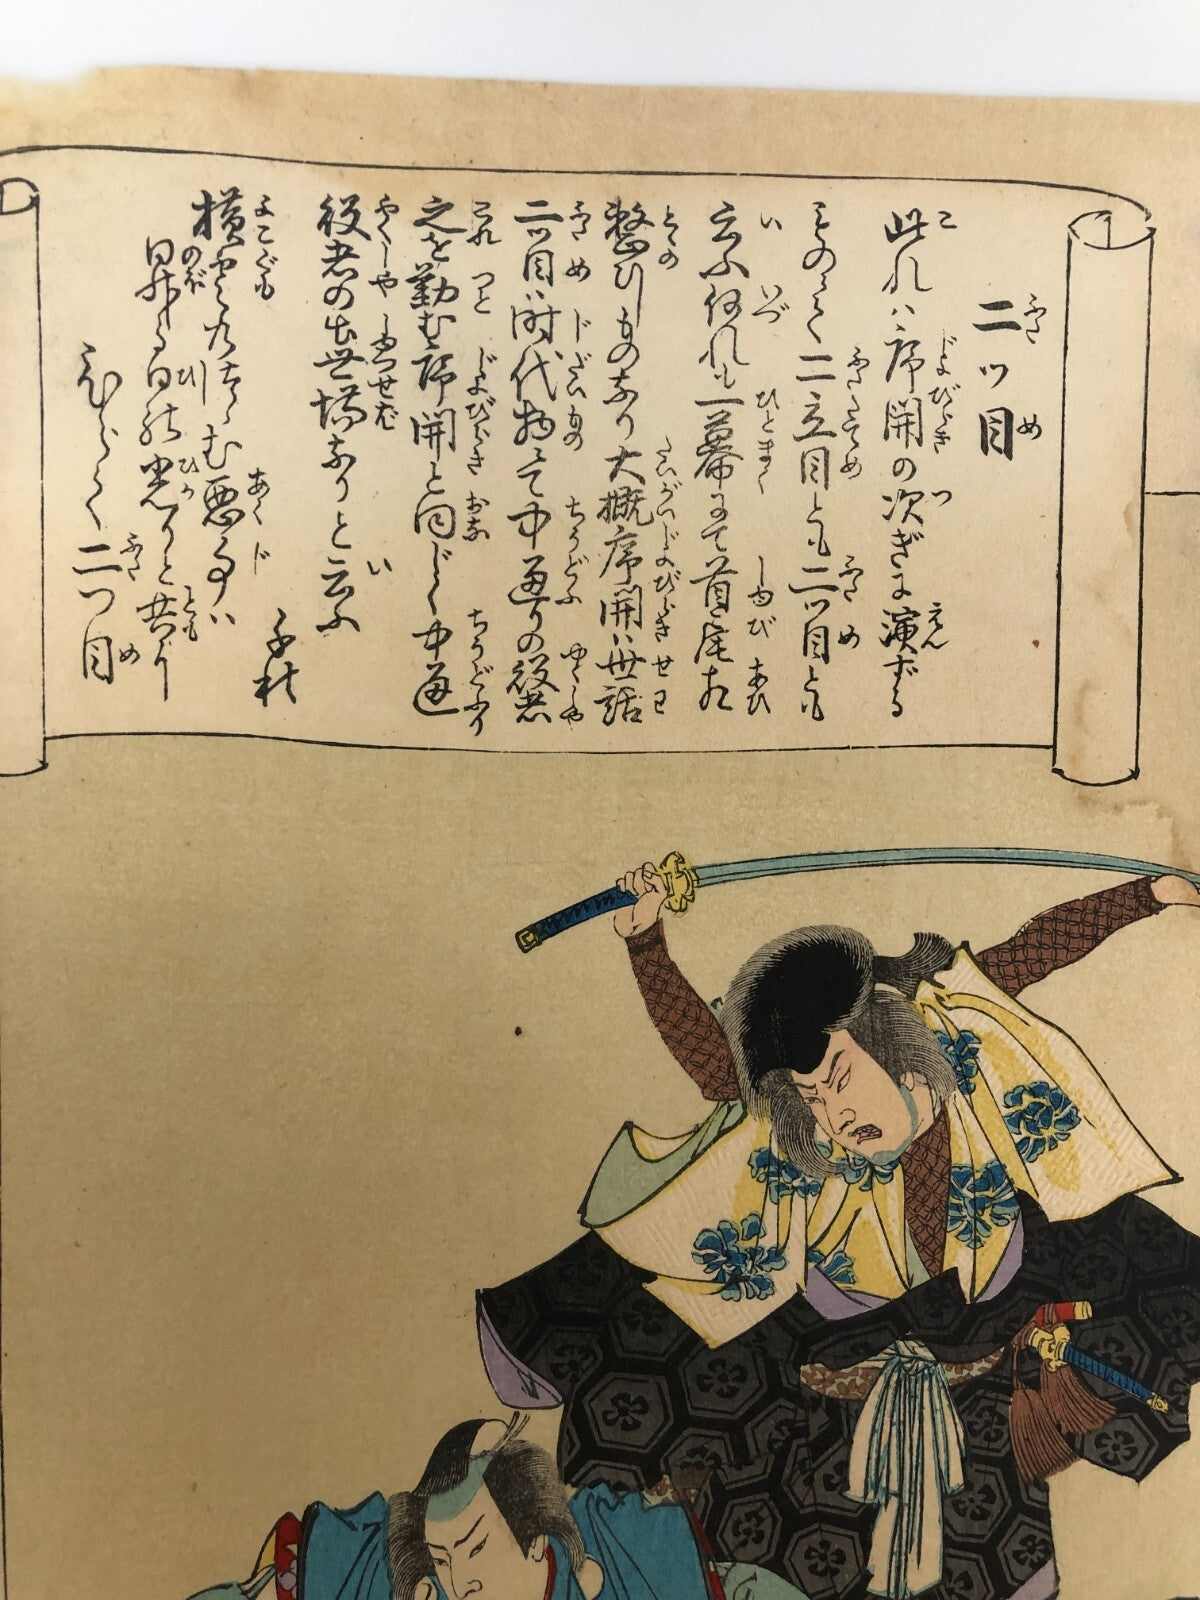 二ッ目
此れハ序開の次ぎに演ずる
ものにて二立目とも二ッ目とも
云ふ何れも一幕にて首尾相
整ひしものなり大概序開ハ世話
二ッ目ハ時代物にて中通りの役者
之を勤む序開と同じく中通
役者の出世場なりと云ふ
横雲の
悪事ハ
昇る日の光りと共に
ひらく二つ目